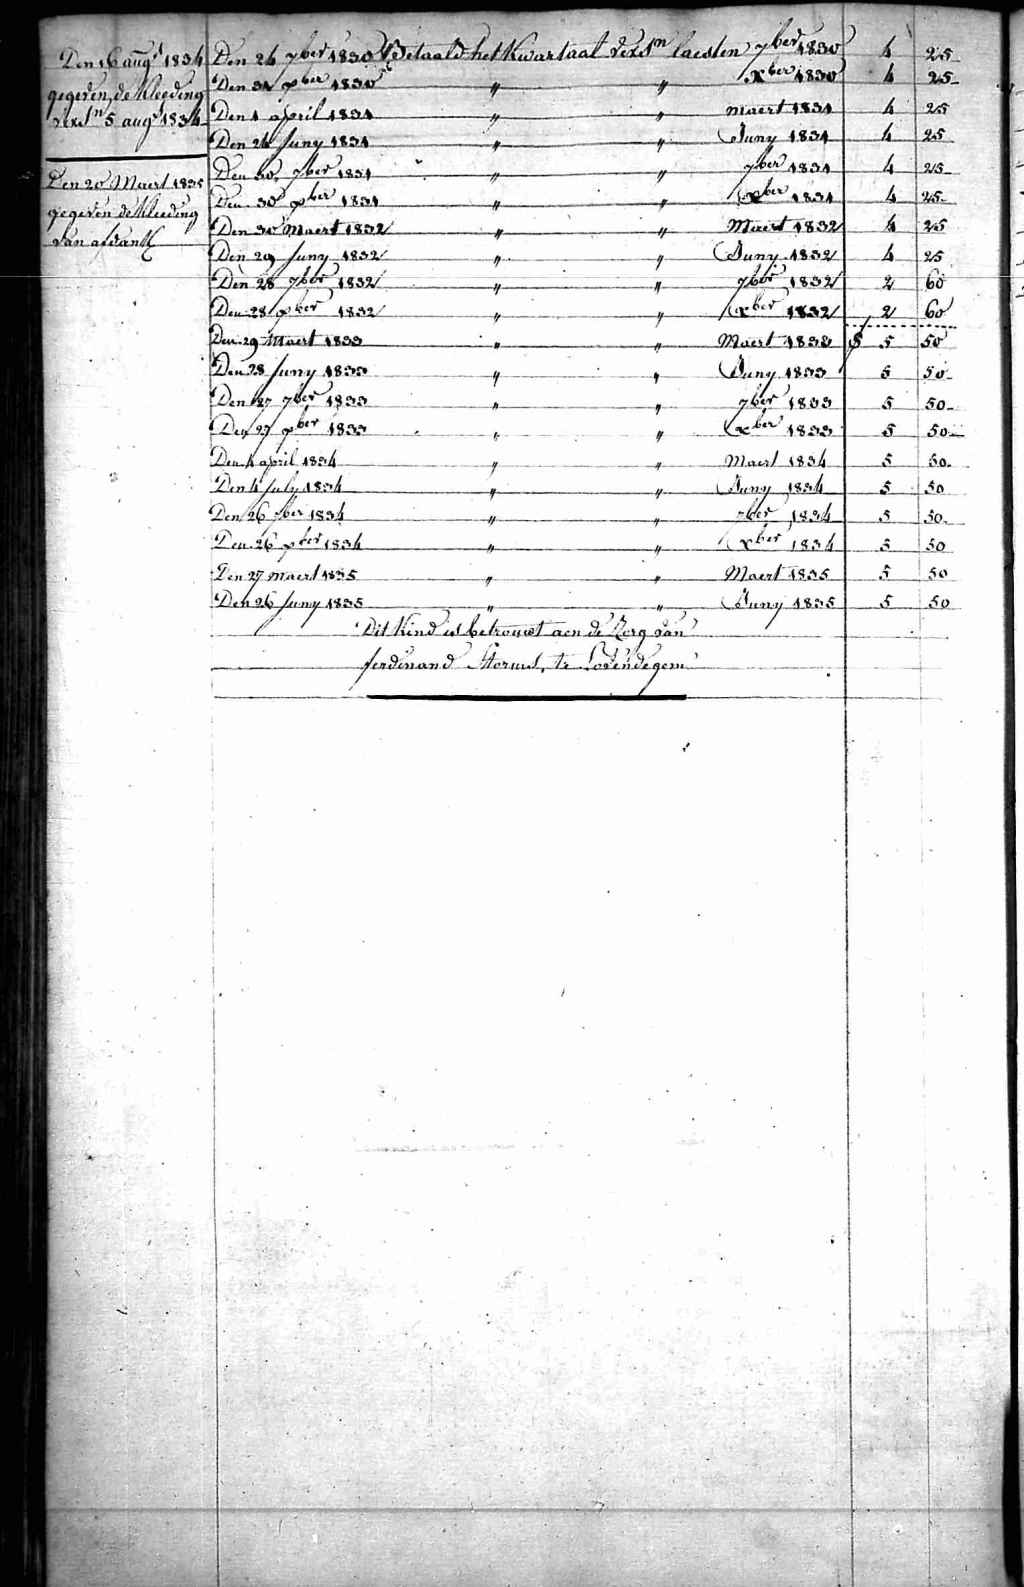 Den 16 augt 1834
gegeven de kleeding
verxln 5 augt 1834
Den 20 Maert 1835
gegeven de kleeding
van afdank
Den 24 7ber 1830 Betaald het kwartaal verxln laesten 7ber 1830 4 25
Den 31 xber 1830 " " xber 1830 4 25
Den 1 april 1831 " " maert 1831 4 25
Den 24 Juny 1831 " " Juny 1831 4 25
Den 30 7ber 1831 " " 7ber 1831 4 25
Den 30 xber 1831 " " xber 1831 4 25
Den 30 Maert 1832 " " Maert 1832 4 25
Den 29 Juny 1832 " " Juny 1832 4 25
Den 28 7ber 1832 " " 7ber 1832 2 60
Den 28 xber 1832 " " xber 1832 2 60
Den 29 Maert 1833 " " Maert 1833 5 50
Den 28 Juny 1833 " " Juny 1833 5 50
Den 27 7ber 1833 " " 7ber 1833 5 50
Den 27 xber 1833 " " xber 1833 5 50
Den 4 april 1834 " " Maert 1834 5 50
Den 4 July 1834 " " Juny 1834 5 50
Den 26 7ber 1834 " " 7ber 1834 5 50
Den 26 xber 1834 " " xber 1834 5 50
Den 27 maert 1835 " " Maert 1835 5 50
Den 26 Juny 1835 " " Juny 1835 5 50
Dit kind is betrouwt aen de Zorg van
ferdinand Storms, te Lovendegem